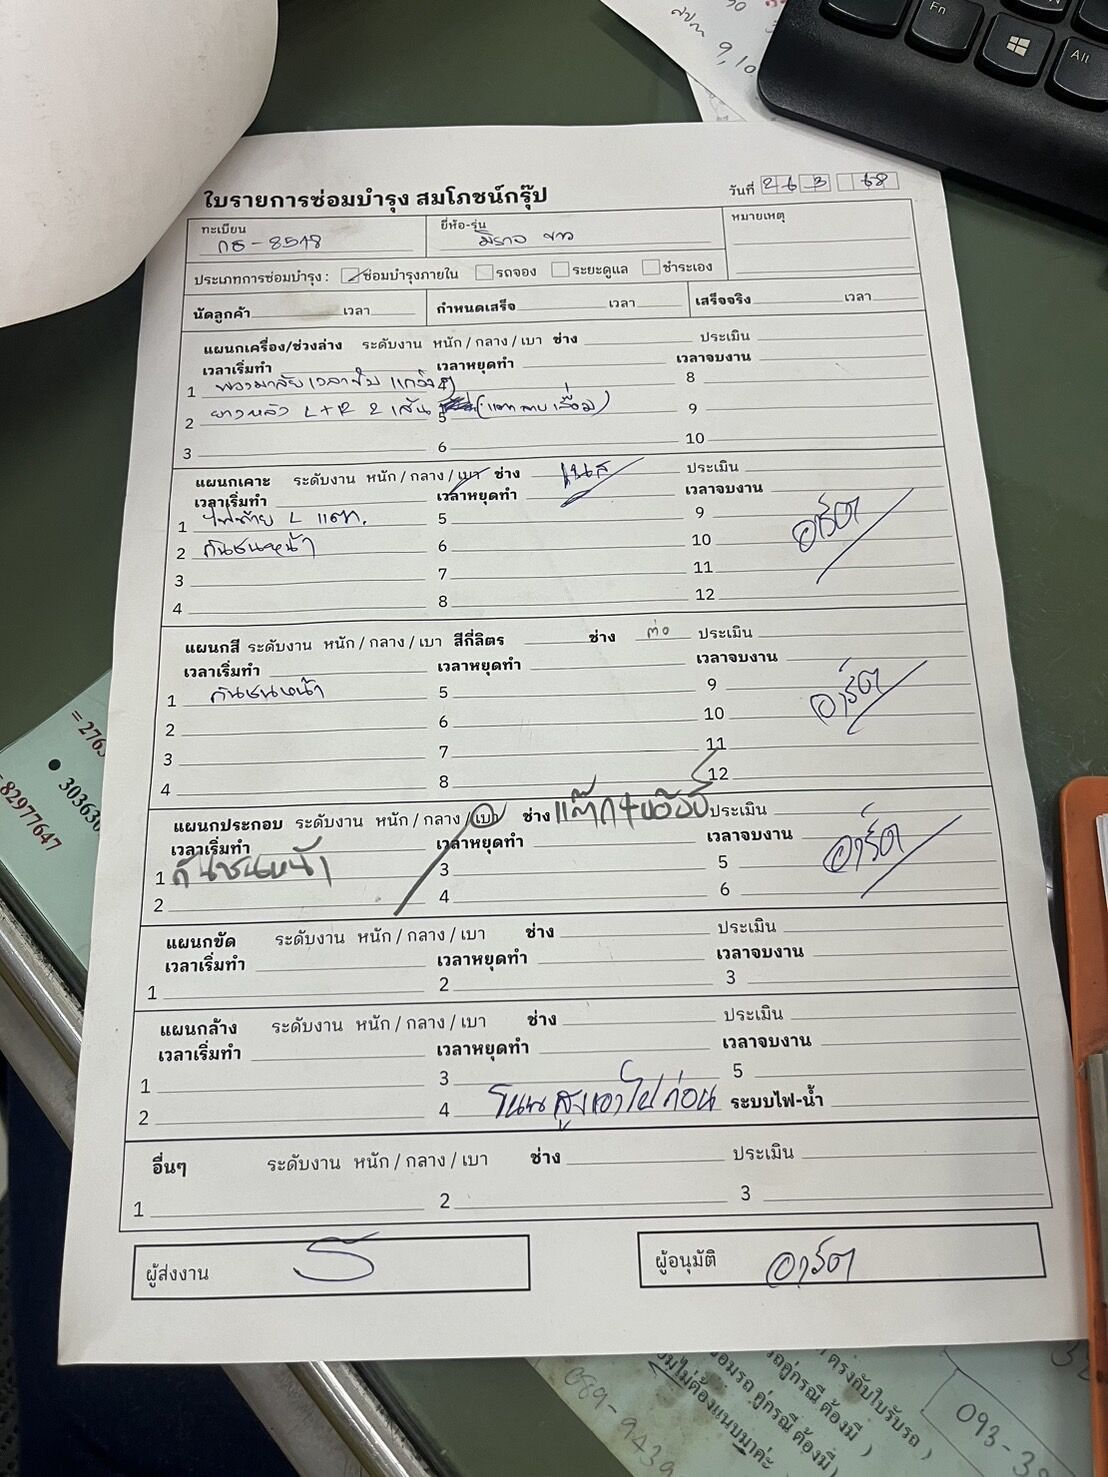 ใบรายการซ่อมบำรุง สมโภชน์กรุ๊ป
วันที่ 26 3 68
ทะเบียน กธ-8518
ยี่ห้อ-รุ่น มิราจ ขาว
หมายเหตุ
ประเภทการซ่อมบำรุง : ซ่อมบำรุงภายใน รถจอง ระยะดูแล ชำระเอง
นัดลูกค้า เวลา กำหนดเสร็จ เวลา เสร็จจริง เวลา
แผนกเครื่อง/ช่วงล่าง ระดับงาน หนัก / กลาง / เบา ช่าง ประเมิน
เวลาเริ่มทำ เวลาหยุดทำ เวลาจบงาน
1 พวงมาลัยเวลาขับ แกว่งๆ 8
2 ยางหลัง L+R 2 เส้น 5 (แตกลายเสื่อม) 9
3 6 10
แผนกเคาะ ระดับงาน หนัก / กลาง / เบา ช่าง ประเมิน
เวลาเริ่มทำ เวลาหยุดทำ เวลาจบงาน
1 ไฟท้าย L แตก. 5 9
2 กันชนหน้า 6 10 อาร์ต
3 7 11
4 8 12
แผนกสี ระดับงาน หนัก / กลาง / เบา สีกี่ลิตร ช่าง ต่อ ประเมิน
เวลาเริ่มทำ เวลาหยุดทำ เวลาจบงาน
1 กันชนหน้า 5 9
2 6 10 อาร์ต
3 7 11
4 8 12
แผนกประกอบ ระดับงาน หนัก / กลาง / เบา ช่าง ประเมิน
เวลาเริ่มทำ เวลาหยุดทำ เวลาจบงาน
1 กันชนหน้า 3 5 อาร์ต
2 4 6
แผนกขัด ระดับงาน หนัก / กลาง / เบา ช่าง ประเมิน
เวลาเริ่มทำ เวลาหยุดทำ เวลาจบงาน
1 2 3
แผนกล้าง ระดับงาน หนัก / กลาง / เบา ช่าง ประเมิน
เวลาเริ่มทำ เวลาหยุดทำ เวลาจบงาน
1 3 5
2 4 โนนสูงเอาไปก่อน ระบบไฟ-น้ำ
อื่นๆ ระดับงาน หนัก / กลาง / เบา ช่าง ประเมิน
1 2 3
ผู้ส่งงาน
ผู้อนุมัติ อาร์ต
Fn
Alt
9,10
= 2763
• 303630
82977647
089-9439
093-3